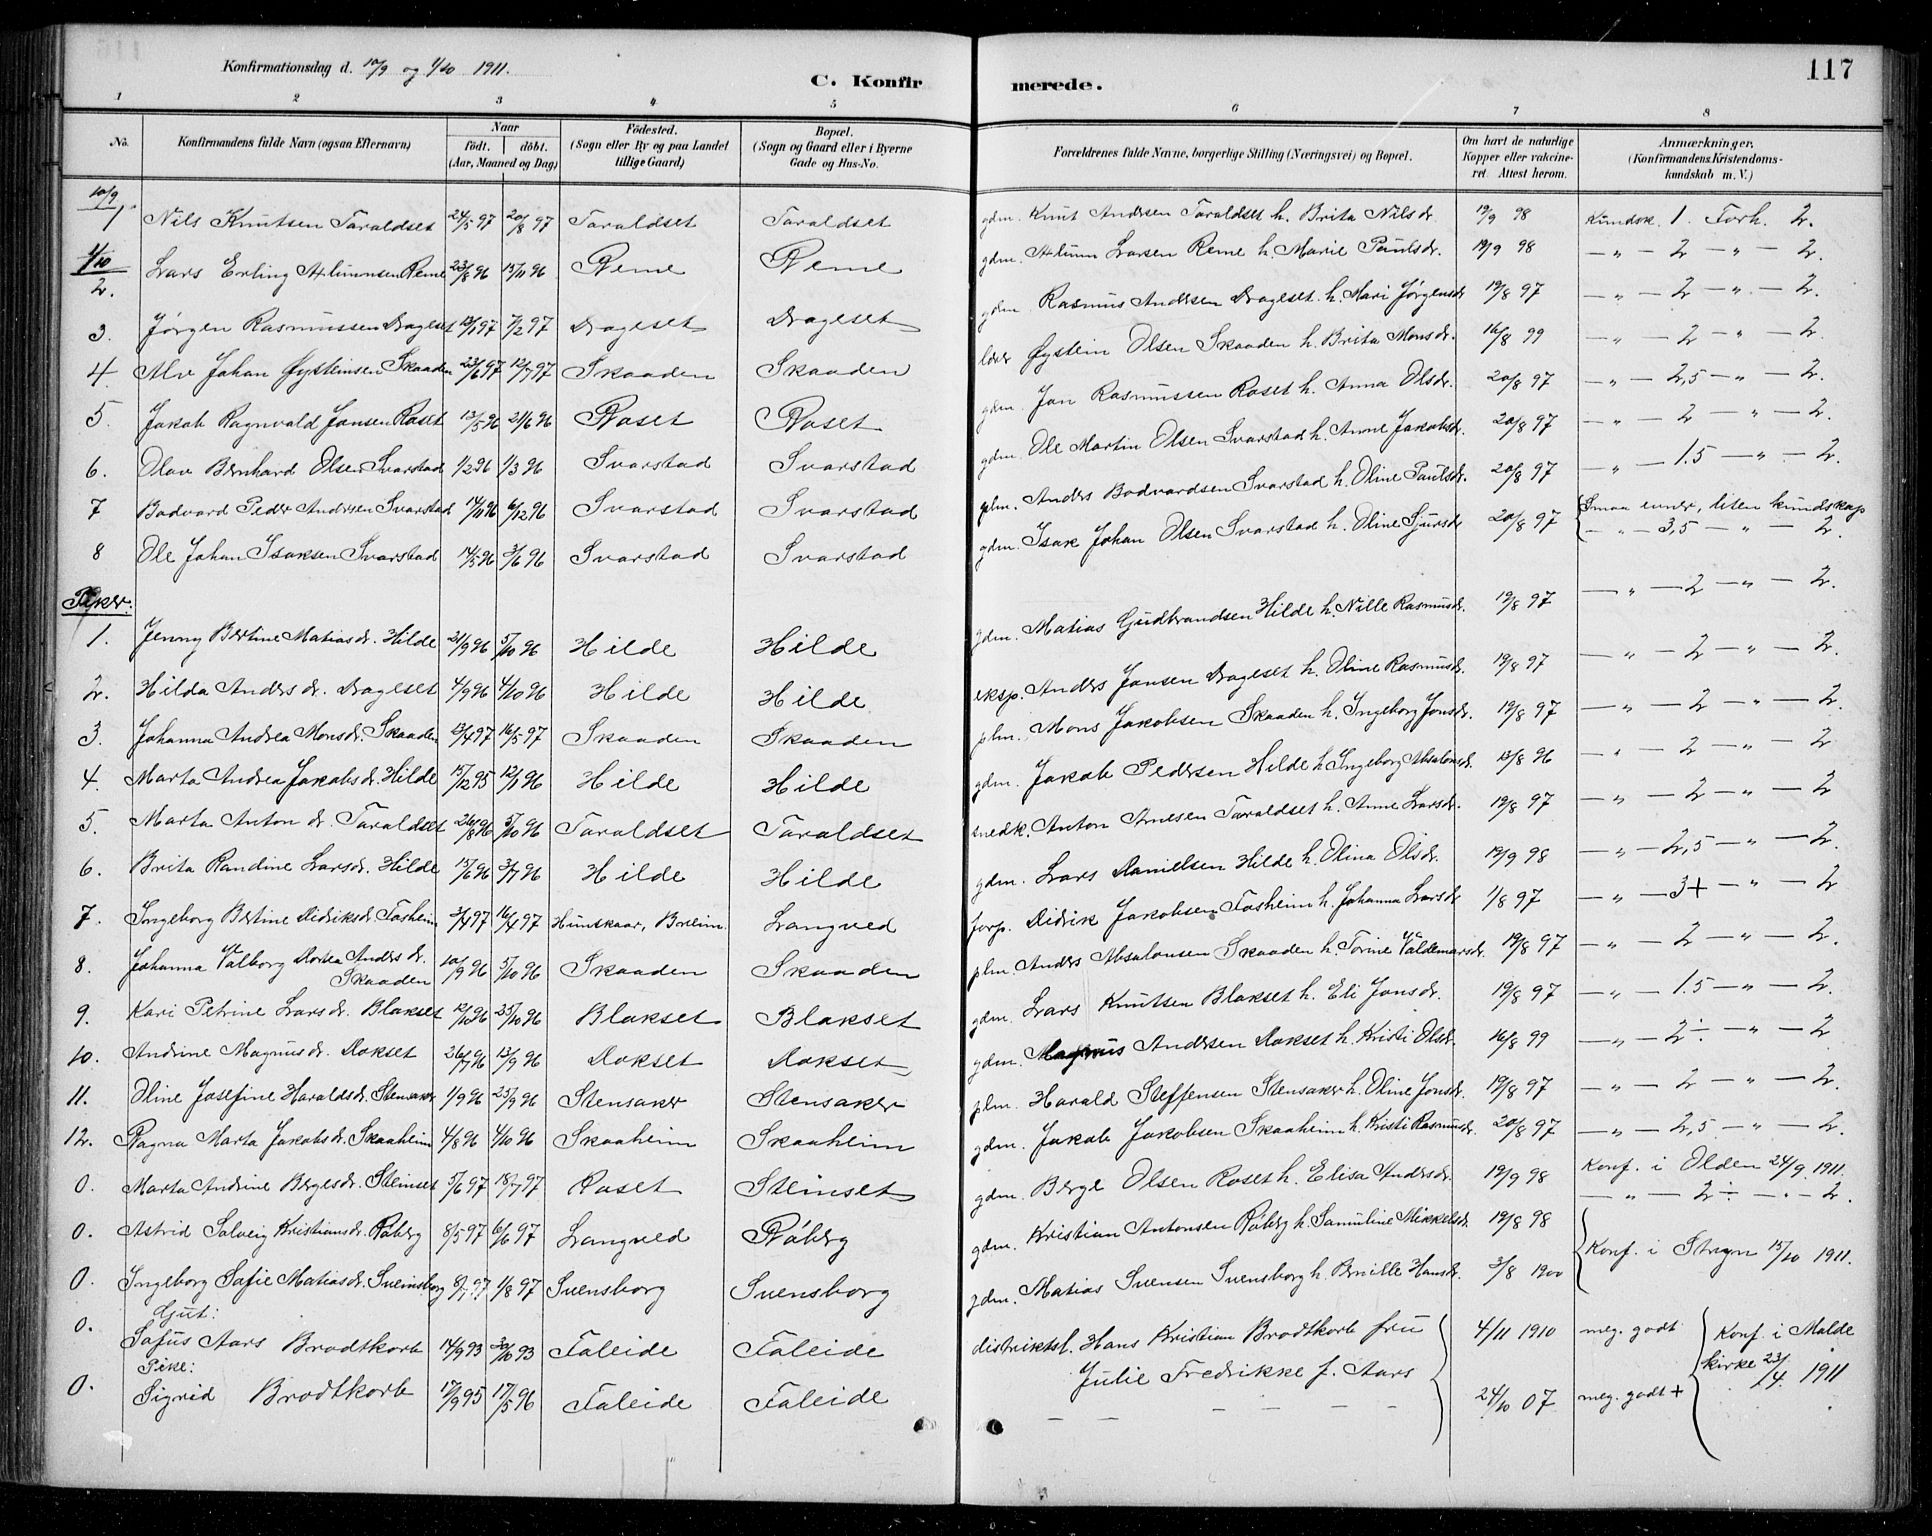 Konfirmationsdag d. 10/9 og 1/10 1911.
C. Konfirmerede.
117
1 2 3 4 5 6 7 8
No. Konfirmandens fulde Navn (ogsaa Efternavn) Naar født. døbt. (Aar, Maaned og Dag) Fødested. (Sogn eller By og paa Landet tillige Gaard) Bopæl. (Sogn og Gaard eller i Byerne Gade og Hus-No. Forældrenes fulde Navne, borgerlige Stilling (Næringsvei) og Bopæl. Om havt de naturlige Kopper eller vakcineret. Attest herom. Anmærkninger. (Konfirmandens Kristendomskundskab m. V.)
10/9
1 Nils Knutsen Taraldset 24/5 97 20/8 97 Taraldset Taraldset gdm. Knut Andersen Taraldset h. Brita Nilsdr. 19/9 98 Kundsk. 1. Forh. 2.
1/10
2. Lars Erling Hlumnsen Reme 23/8 96 15/11 96 Reme Reme gdm. Larsen Reme h. Marie Paulsdr. 19/9 98 — „ — 2 — „ — 2.
3. Jørgen Rasmussen Drageset 13/1 97 7/2 97 Drageset Drageset gdm. Rasmus Andersen Drageset h. Mari Jørgensdr 19/8 97 — „ — 2 — „ — 2.
4. Alv Johan Øysteinsen Skaaden 23/6 97 12/7 97 Skaaden Skaaden lærer Øystein Olsen Skaaden h. Brita Monsdr. 16/8 99 — „ — 2 — „ — 2
5. Jakob Ragnvald Jonsen Roset 13/5 96 21/6 96 Roset Roset gdm. Jon Rasmussen Roset h. Anna Olsdr. 20/8 97 — „ — 2,5 — „ — 2.
6. Olav Bernhard Olsen Svarstad 1/2 96 1/3 96 Svarstad Svarstad gdm. Ole Martin Olsen Svarstad h. Anne Jakobsdr. 20/8 97 — „ — 2 — „ — 2.
7 Bodvard Peder Andersen Svarstad 14/11 96 6/12 96 Svarstad Svarstad plm. Anders Bodvardsen Svarstad h. Oline Paulsdr. 20/8 97 — „ — 1.5 — „ — 2.
8 Ole Johan Isaksen Svarstad 14/5 96 3/6 96 Svarstad Svarstad gdm. Isak Johan Olsen Svarstad h. Oline Sjursdr 20/8 97 Smaa evner, liten kundskap — „ — 3,5 — „ — 2.
Piker:
1. Jenny Bertine Matiasdr. Hilde 21/9 96 5/10 96 Hilde Hilde gdm. Matias Gudbrandsen Hilde h. Nille Rasmusdr. 19/8 97 — „ — 2 — „ — 2.
2. Hilda Andersdr. Drageset 4/9 96 4/10 96 Hilde Hilde eksp. Anders Jonsen Drageset h. Oline Rasmusdr. 19/8 97 — „ — 2 — „ — 2.
3. Johanna Andrea Monsdr. Skaaden 13/4 97 16/5 97 Skaaden Skaaden plm. Mons Jakobsen Skaaden h. Ingeborg Jonsdr. 19/8 97 — „ — 2 — „ — 2.
4. Marta Andrea Jakobsdr. Hilde 15/12 95 12/1 96 Hilde Hilde gdm. Jakob Pedersen Hilde h. Ingeborg Absalonsdr. 13/8 96 — „ — 2 — „ — 2
5. Marta Antondr. Taraldset 26/8 96 5/10 96 Taraldset Taraldset snedk. Anton Arnesen Taraldset h. Anne Larsdr. 19/8 97 — „ — 2 — „ — 2
6. Brita Randine Larsdr. Hilde 15/6 96 3/7 96 Hilde Hilde gdm. Lars Danielsen Hilde h. Olina Olsdr. 19/9 98 — „ — 2,5 — „ — 2.
7. Ingeborg Bertine Didriksdr. Fosheim 3/4 97 16/4 97 Hunskaar, Breim. Langved forp. Didrik Jakobsen Fosheim h. Johanna Larsdr 1/8 97 — „ — 3+ — „ — 2
8. Johanna Valborg Dortea Andersdr. Skaaden 10/9 96 5/10 96 Skaaden Skaaden plm. Anders Absalonsen Skaaden h. Torine Valdemarsdr. 19/8 97 — „ — 2 — „ — 2.
9. Kari Petrine Larsdr. Blakset 12/10 96 25/10 96 Blakset Blakset gdm. Lars Knutsen Blakset h. Eli Jonsdr. 19/8 97 — „ — 1.5 — „ — 2.
10. Andrine Magnusdr. Dokset 26/7 96 13/9 96 Dokset Dokset gdm. Magnus Andersen Dokset h. Kristi Olsdr. 16/8 99 — „ — 2 ÷ — „ — 2
11. Oline Josefine Haraldsdr. Stensaker 1/9 96 25/9 96 Stensaker Stensaker plm. Harald Steffensen Stensaker h. Oline Jonsdr. 19/8 97 — „ — 2 — „ — 2.
12. Ragna Marta Jakobsdr. Skaaheim 4/8 96 4/10 96 Skaaheim Skaaheim gdm. Jakob Jakobsen Skaaheim h. Kristi Rasmusdr. 20/8 97 — „ — 2,5 — „ — 2.
0. Marta Andrine Bergesdr. Steinset 5/6 97 18/7 97 Roset Steinset gdm. Berge Olsen Roset h. Elisa Andersdr. 19/9 98 Konf. i Olden 24/9 1911. — „ — 2 ÷ — „ — 2.
0. Astrid Solveig Kristiansdr. Røberg 8/5 97 6/6 97 Langved Røberg gdm. Kristian Antonsen Røberg h. Samuline Mikkelsdr. 19/8 98 Konf. i Stryn 15/10 1911.
0. Ingeborg Sofie Matiasdr. Svensborg 8/7 97 1/8 97 Svensborg Svensborg gdm. Matias Svensen Svensborg h. Brille Hansdr. 3/8 1900
Gut:
0. Sofus Aars Brodtkorb 14/9 93 30/10 93 Faleide Faleide distriktsl. Hans Kristian Brodtkorb fru Julie Fredrikke f. Aars 4/11 1910 meg. godt Konf. i Molde kirke 23/4. 1911
Pike:
0. Sigrid Brodtkorb 17/9 95 17/5 96 Faleide Faleide — — — — — — 24/10 07 meg. godt +